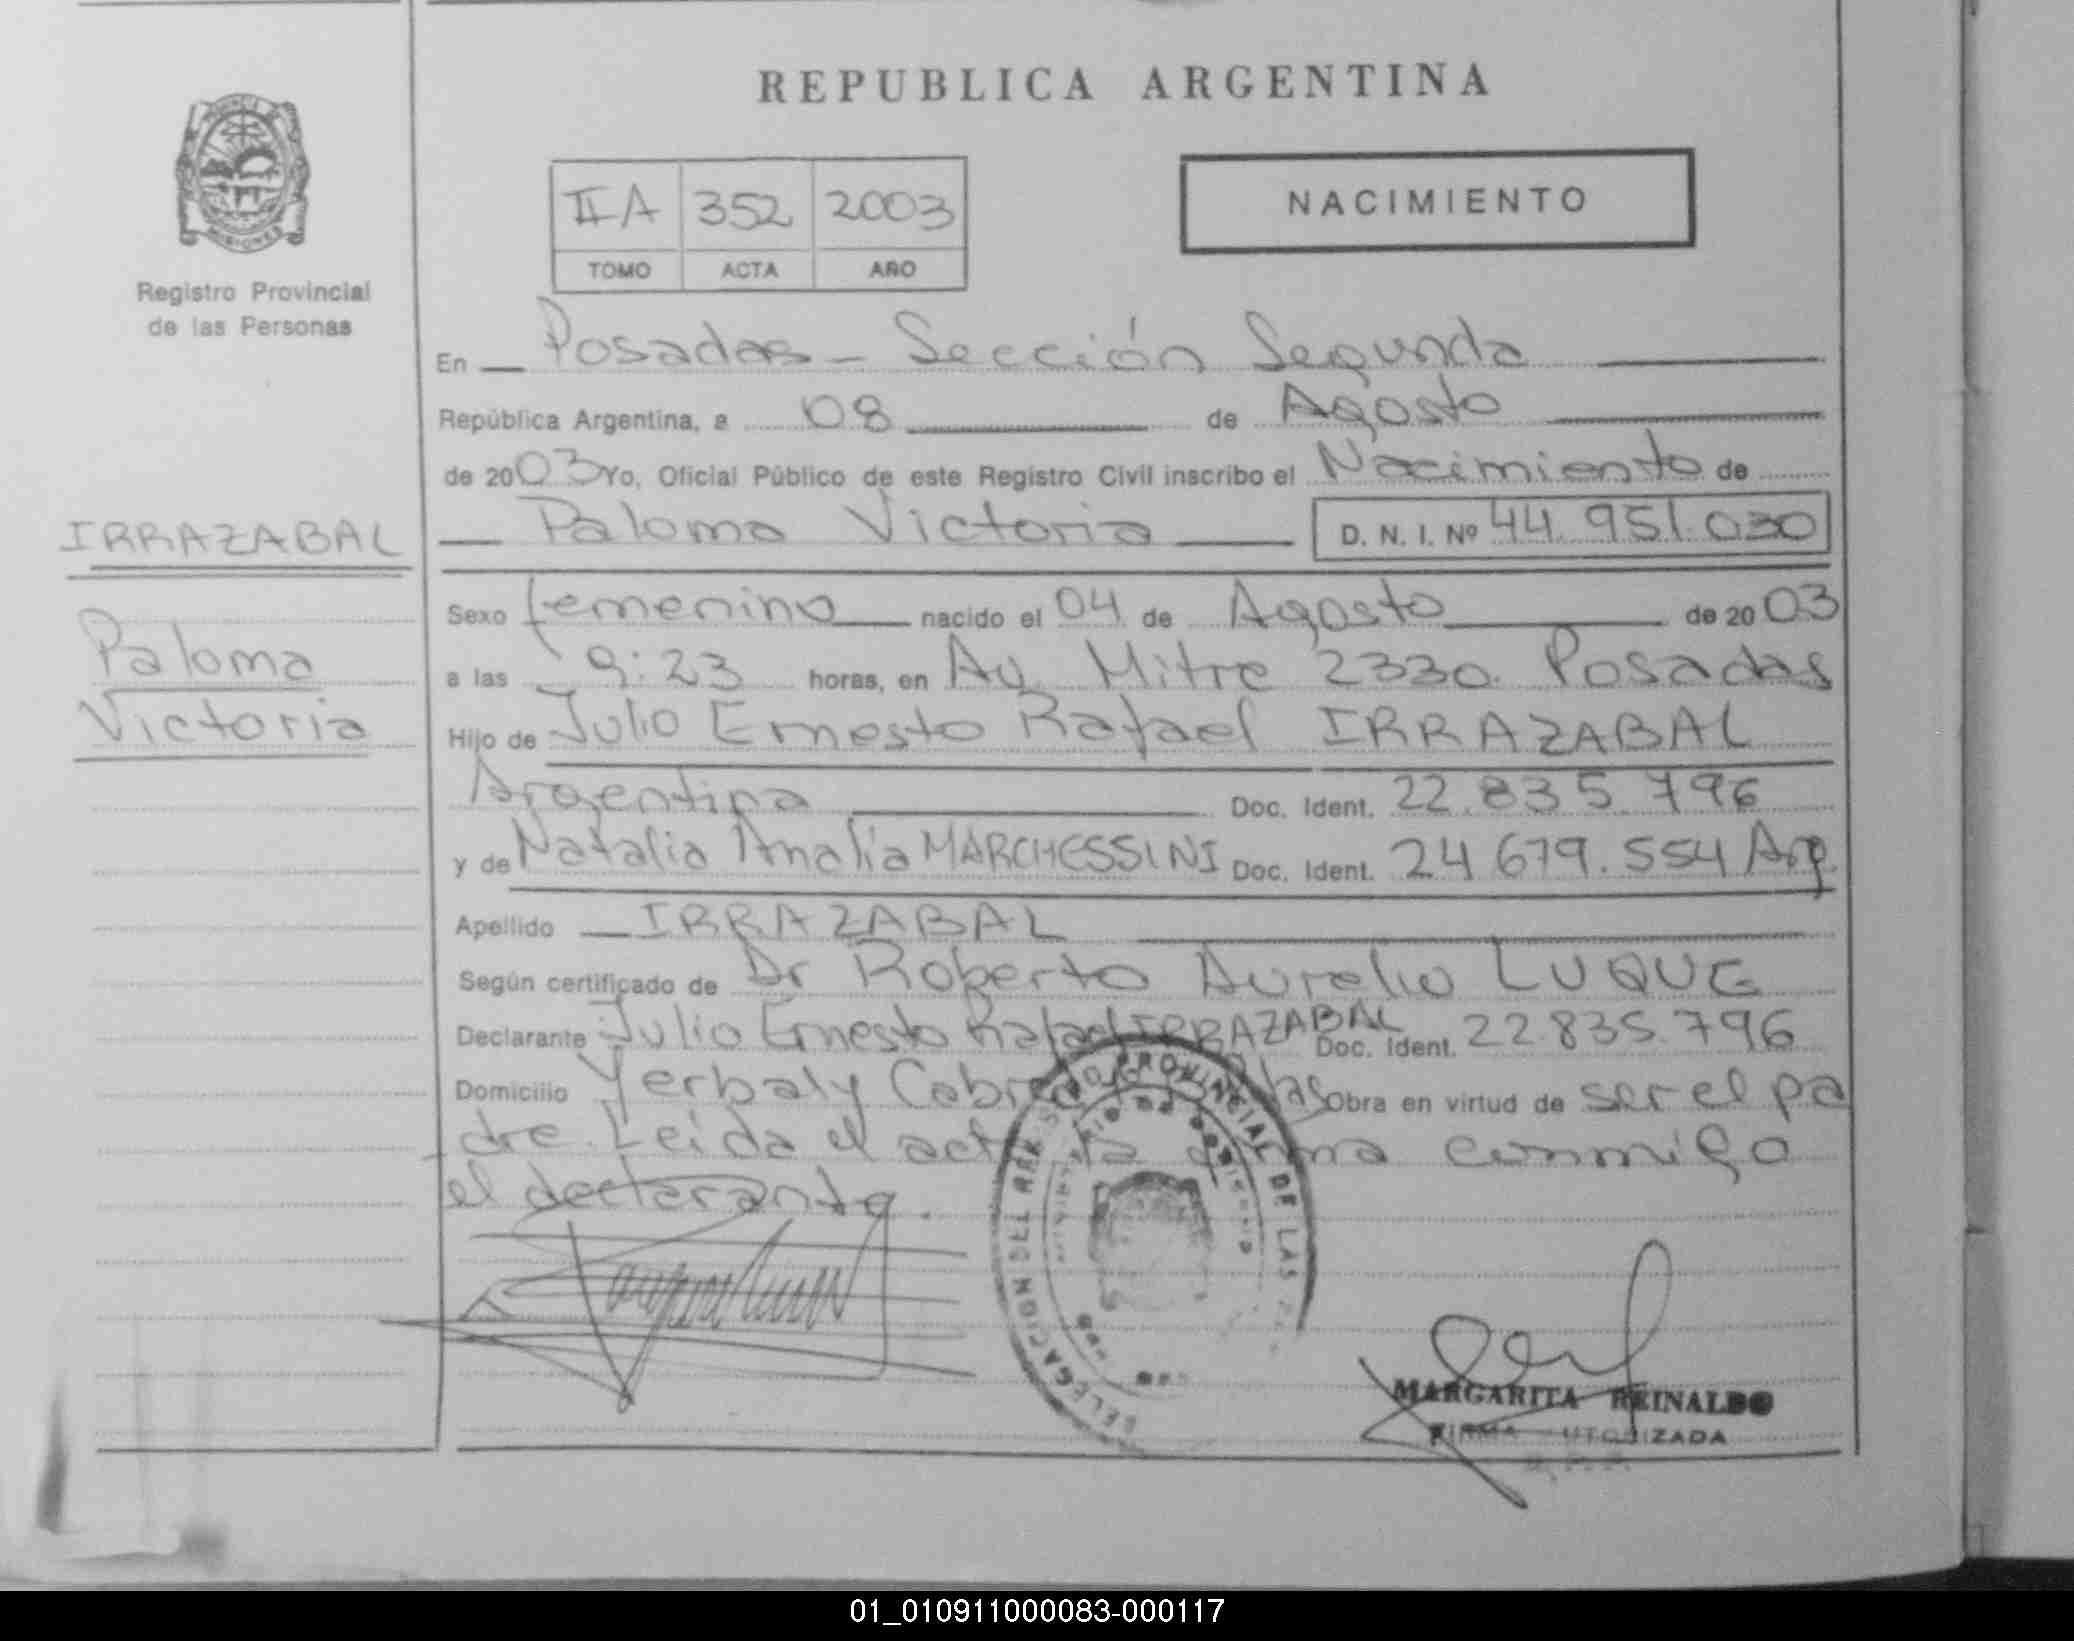 REPUBLICA ARGENTINA
PROVINCIA
MISIONES
Registro Provincial
de las Personas
IIA 352 2003
TOMO ACTA AÑO
NACIMIENTO
En Posadas - Sección Segunda
República Argentina, a 08 de Agosto
de 2003 Yo, Oficial Público de este Registro Civil inscribo el Nacimiento de
IRRAZABAL
Paloma Victoria D. N. I. Nº 44.951.030
Sexo femenino nacido el 04 de Agosto de 2003
Paloma
Victoria
a las 9:23 horas, en Av. Mitre 2330. Posadas
Hijo de Julio Ernesto Rafael IRRAZABAL
Argentina Doc. Ident. 22.835.796
y de Natalia Analía MARCHESSINI Doc. Ident. 24.679.554 Arg.
Apellido IRRAZABAL
Según certificado de Dr Roberto Aurelio LUQUE
Declarante Julio Ernesto Rafael IRRAZABAL Doc. Ident. 22.835.796
Domicilio Yerbal y Obra en virtud de ser el pa
dre. Leída el acta la firma conmigo
el declarante.
DELEGACION DEL PROVINCIAL DE LAS
MARGARITA REINALDO
FIRMA AUTORIZADA
01_010911000083-000117